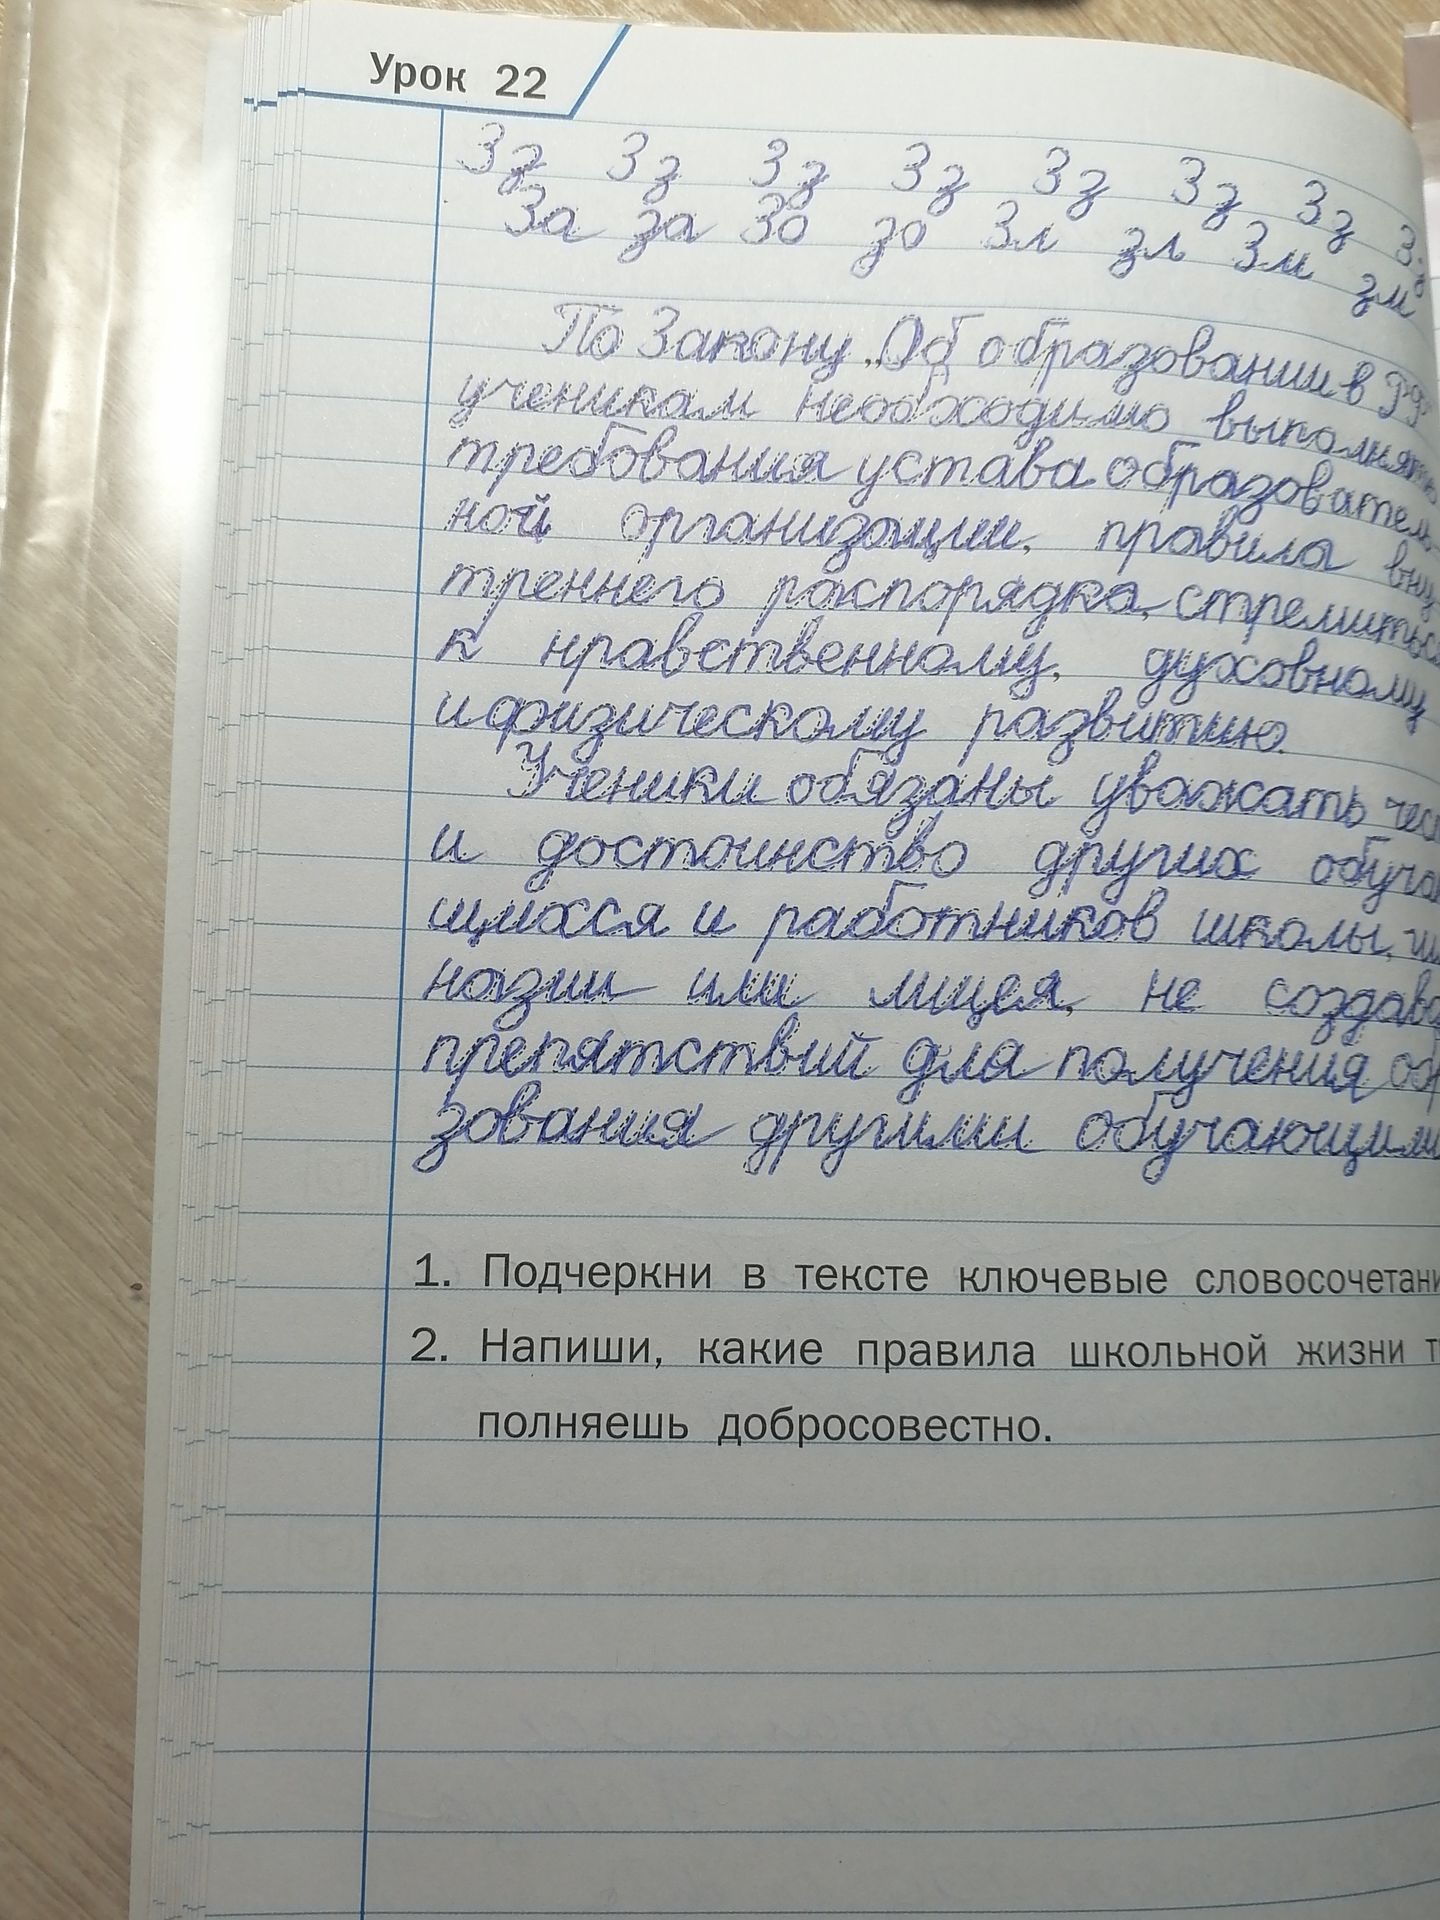 Урок 22
З з З з З з З з З з З з З з З з
За за Зо зо Зл зл Зм зм
По Закону „Об образовании в РФ
ученикам необходимо выполнять
требования устава образователь-
ной организации, правила вну-
треннего распорядка, стремиться
к нравственному, духовному
и физическому развитию.
Ученики обязаны уважать чес
и достоинство других обуча
щихся и работников школы,
назии или лицея, не создава
препятствий для получения обр
зования другими обучающими
1. Подчеркни в тексте ключевые словосочетани
2. Напиши, какие правила школьной жизни т
полняешь добросовестно.